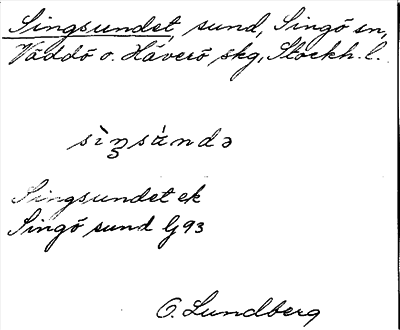 Singsundet, sund, Singö sn,
Väddö o. Häverö skg, Stockh. l.
sìŋsúndə
Singsundet ek
Singö sund G 93
O. Lundberg